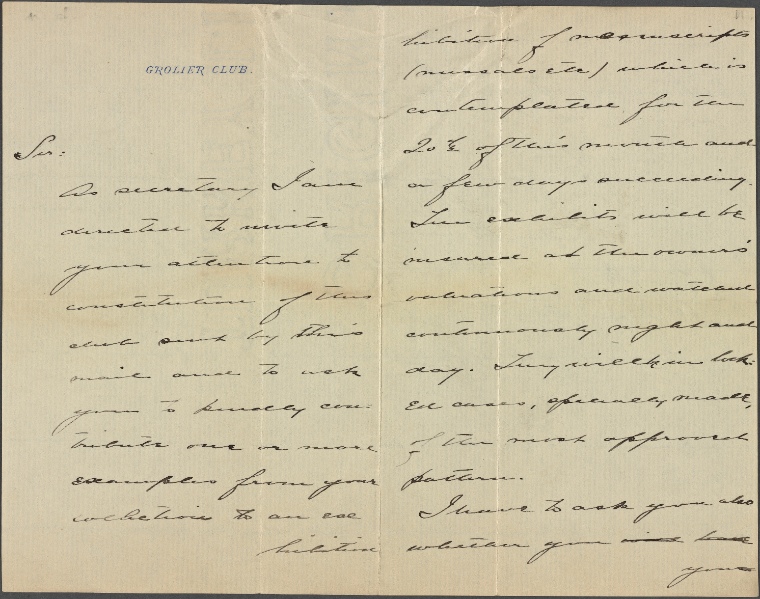 GROLIER CLUB.
Sir:
As secretary I am
directed to invite
your attention to
constitution of this
club sent by this
mail and to ask
you to kindly con-
tribute one or more
examples from your
collection to an ex
hibition
hibition of manuscripts
(missals etc) which is
contemplated for the
20th of this month and
a few days succeeding.
The exhibits will be
insured at the owners'
valuations and watched
continuously night and
day. They will be in lock-
ed cases, specially made,
of the most approved
pattern.
I have to ask you also
whether you
your